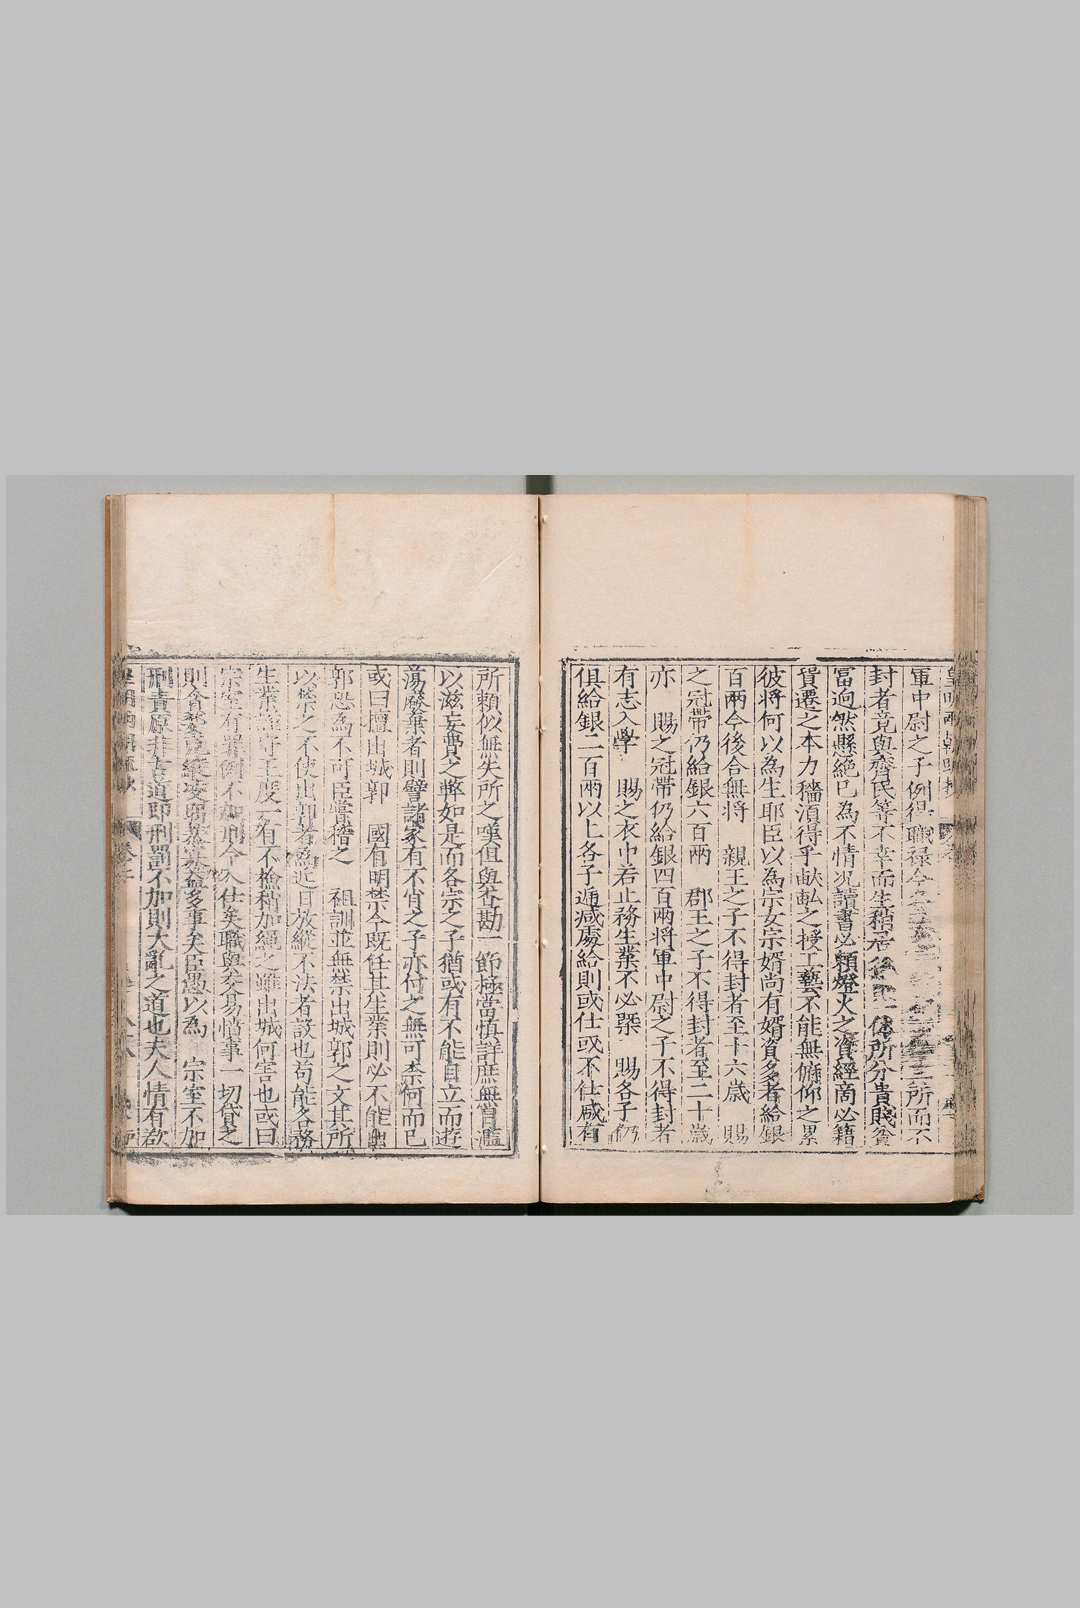 皇明兩朝疏抄
軍中尉之子例得職祿今
所而不
封者竟與齊民等不幸而生稍
所分貴賤貧
富迥然懸絕已為不情况讀書必賴燈火之資經商必籍
貲遷之本力穡須得乎畎畒之授工藝不能無俯仰之累
彼將何以為生耶臣以為宗女宗婿尚有婿資多者給銀
百兩今後合無將 親王之子不得封者至十六歲 賜
之冠帶仍給銀六百兩 郡王之子不得封者至二十歲
亦 賜之冠帶仍給銀四百兩將軍中尉之子不得封者
有志入學 賜之衣巾若止務生業不必槩 賜各子仍
俱給銀二百兩以上各子遞减處給則或仕或不仕咸有
所賴似無失所之嘆但與查勘一節極當慎詳庶無冒濫
以滋妄費之弊如是而各宗之子猶或有不能自立而遊
蕩廢棄者則譬諸家有不肖之子亦付之無可柰何而已
或曰擅出城郭 國有明禁今既任其生業則必不能
郭恐為不可臣嘗稽之 祖訓並無禁出城郭之文其所
以禁之不使出郭者為近日放縱不法者設也苟能各務
生業謹守王度一有不檢稍加繩之雖出城何害也或曰
宗室有罪例不加刑今入仕矣職與委易憤事一切貸之
則貪婪
多事矣臣愚以為 宗室不加
刑責原非古道即刑罰不加則大亂之道也夫人情有欲